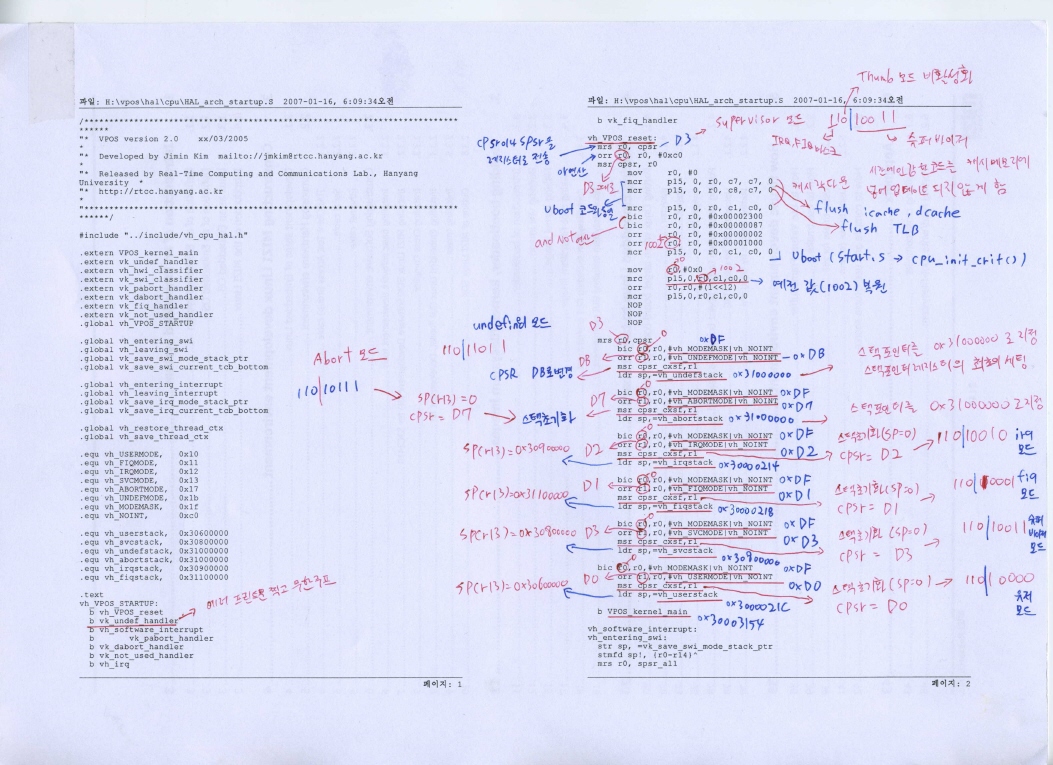 파일: H:\vpos\hal\cpu\HAL_arch_startup.S 2007-01-16, 6:09:34오전
/*******************************************************************************
******
"* VPOS version 2.0 xx/03/2005
*
"* Developed by Jimin Kim mailto:/jmkim@rtcc.hanyang.ac.kr
*
"* Released by Real-Time Computing and Communications Lab., Hanyang
University *
"* http://rtcc.hanyang.ac.kr
*
********************************************************************************
******/
#include "../include/vh_cpu_hal.h"
.extern VPOS_kernel_main
.extern vk_undef_handler
.extern vk_hwi_classifier
.extern vk_swi_classifier
.extern vk_pabort_handler
.extern vk_dabort_handler
.extern vk_fiq_handler
.extern vk_not_used_handler
.global vh_VPOS_STARTUP
.global vh_entering_swi
.global vh_leaving_swi
.global vk_save_swi_mode_stack_ptr
.global vk_save_swi_current_tcb_bottom
.global vh_entering_interrupt
.global vh_leaving_interrupt
.global vk_save_irq_mode_stack_ptr
.global vk_save_irq_current_tcb_bottom
.global vh_restore_thread_ctx
.global vh_save_thread_ctx
.equ vh_USERMODE, 0x10
.equ vh_FIQMODE, 0x11
.equ vh_IRQMODE, 0x12
.equ vh_SVCMODE, 0x13
.equ vh_ABORTMODE, 0x17
.equ vh_UNDEFMODE, 0x1b
.equ vh_MODEMASK, 0x1f
.equ vh_NOINT, 0xc0
.equ vh_userstack, 0x30600000
.equ vh_svcstack, 0x30800000
.equ vh_undefstack, 0x31000000
.equ vh_abortstack, 0x31000000
.equ vh_irqstack, 0x30900000
.equ vh_fiqstack, 0x31100000
.text
vh_VPOS_STARTUP:
b vh_VPOS_reset
b vk_undef_handler
b vh_software_interrupt
b vk_pabort_handler
b vk_dabort_handler
b vk_not_used_handler
b vh_irq
에러 프린트만 찍고 무한루프
Abort 모드
110|10111
SP(r13)=0
cpsr = D7
스택초기화
페이지: 1
파일: H:\vpos\hal\cpu\HAL_arch_startup.S 2007-01-16, 6:09:34오전
Thumb 모드 비활성화
b vk_fiq_handler
Supervisor 모드 110|10011
IRQ,FIQ마스크
슈퍼바이저
vh_VPOS_reset:
mrs r0, cpsr D3
orr r0, r0, #0xc0
msr cpsr, r0
mov r0, #0
mcr p15, 0, r0, c7, c7, 0
mcr p15, 0, r0, c8, c7, 0
mrc p15, 0, r0, c1, c0, 0
bic r0, r0, #0x00002300
bic r0, r0, #0x00000087
orr r0, r0, #0x00000002
orr r0, r0, #0x00001000
mcr p15, 0, r0, c1, c0, 0
mov r0,#0x0
mrc p15,0,r0,c1,c0,0
orr r0,r0,#(1<<12)
mcr p15,0,r0,c1,c0,0
NOP
NOP
NOP
flush icache, dcache
flush TLB
Uboot (start.s → cpu_init_crit())
예전 값(1002) 복원
undefined 모드
110|11011
CPSR DB로변경
mrs r0,cpsr D3
bic r0,r0,#vh_MODEMASK|vh_NOINT 0xDF
orr r1,r0,#vh_UNDEFMODE|vh_NOINT 0xDB
msr cpsr_cxsf,r1 DB
ldr sp,=vh_undefstack 0x31000000
스택포인터를 0x31000000로 지정
스택포인터레지스터의 최초의 세팅
bic r0,r0,#vh_MODEMASK|vh_NOINT 0xDF
orr r1,r0,#vh_ABORTMODE|vh_NOINT 0xD7
msr cpsr_cxsf,r1 D7
ldr sp,=vh_abortstack 0x31000000
스택포인터를 0x31000000로지정
bic r0,r0,#vh_MODEMASK|vh_NOINT 0xDF
orr r1,r0,#vh_IRQMODE|vh_NOINT
msr cpsr_cxsf,r1 0xD2
ldr sp,=vh_irqstack 0x30000214
SP(r13)=0x3090000 D2
스택초기화(SP=0)
cpsr= D2
110|10010 irq 모드
bic r0,r0,#vh_MODEMASK|vh_NOINT 0xDF
orr r1,r0,#vh_FIQMODE|vh_NOINT
msr cpsr_cxsf,r1 0xD1
ldr sp,=vh_fiqstack 0x30000218
SP(r13)=0x31100000 D1
스택초기화(SP=0)
cpsr = D1
110|10001 fiq 모드
bic r0,r0,#vh_MODEMASK|vh_NOINT 0xDF
orr r1,r0,#vh_SVCMODE|vh_NOINT
msr cpsr_cxsf,r1 0xD3
ldr sp,=vh_svcstack 0x30800000
SP(r13)=0x3080000 D3
스택초기화(SP=0)
cpsr = D3
110|10011 슈퍼바이저 모드
bic r0,r0,#vh_MODEMASK|vh_NOINT 0xDF
orr r1,r0,#vh_USERMODE|vh_NOINT
msr cpsr_cxsf,r1 0xD0
ldr sp,=vh_userstack 0x3000021C
SP(r13)=0x3060000 D0
스택초기화(SP=0)
cpsr = D0
110|10000 유저 모드
b VPOS_kernel_main 0x30003154
vh_software_interrupt:
vh_entering_swi:
str sp, =vk_save_swi_mode_stack_ptr
stmfd sp!, {r0-r14}^
mrs r0, spsr_all
페이지: 2